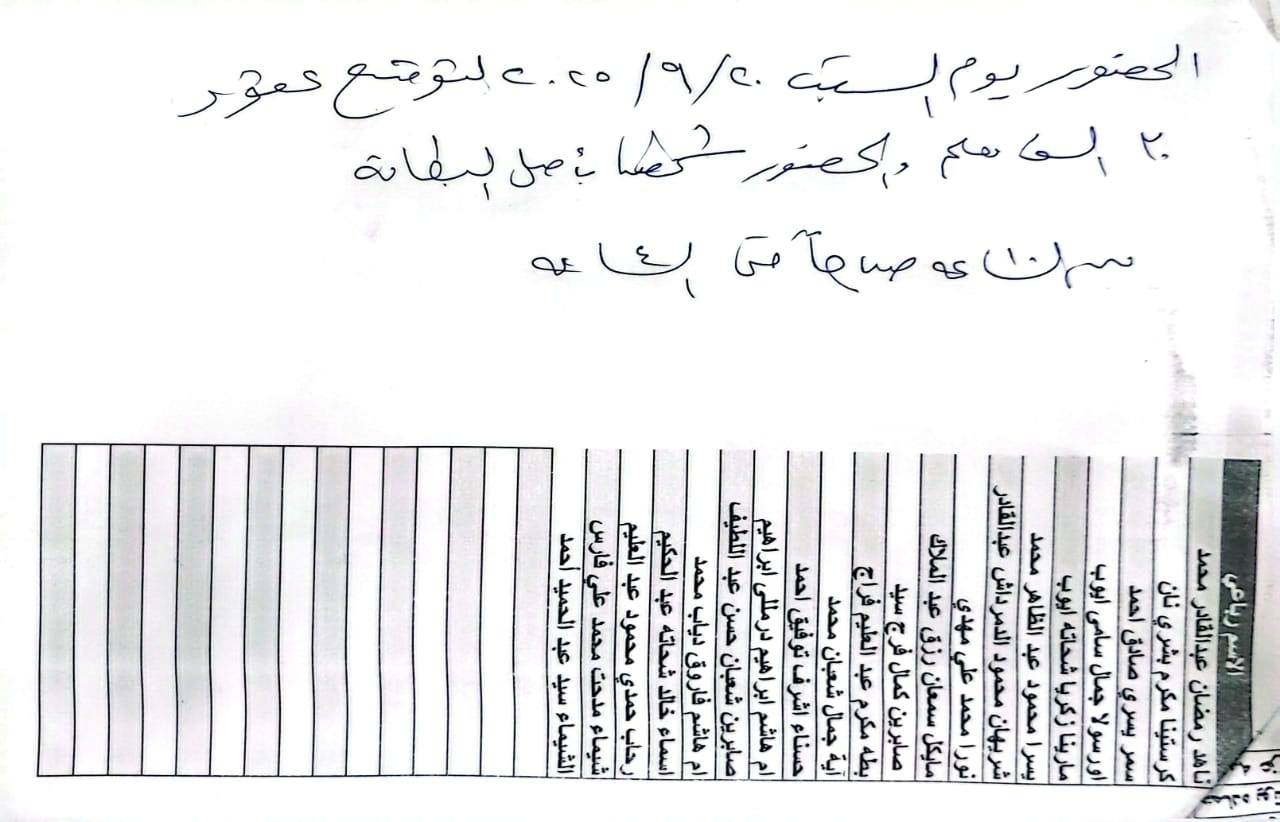 الحضور يوم السبت ٢٠/٩/٢٠٢٥ لتوقيع عقود
٣٠ الف معلم والحضور شخصيا بأصل البطاقة
من الساعه ١٠ صباحاً حتى الساعه ٤
الاسم رباعى
ناهد رمضان عبدالقادر محمد
كرستينا مكرم بشري نان
سمر يسري صادق احمد
اورسولا جمال سامى ايوب
مارينا زكريا شحاته ايوب
يسرا محمود عبد الظاهر محمد
شريهان محمود الدمرداش عبدالقادر
نورا محمد على مهدي
مايكل سمعان رزق عبد الملاك
صابرين كمال فرج سيد
بطه مكرم عبد العليم فراج
آية جمال شعبان محمد
حسناء اشرف توفيق احمد
ام هاشم ابراهيم درمللى ابراهيم
صابرين شعبان حسن عبد اللطيف
ام هاشم فاروق دياب محمد
اسماء خالد شحاته عبد الحكيم
رحاب حمدي محمود عبد العليم
شيماء مدحت محمد علي فارس
الشيماء سيد عبد الحميد أحمد